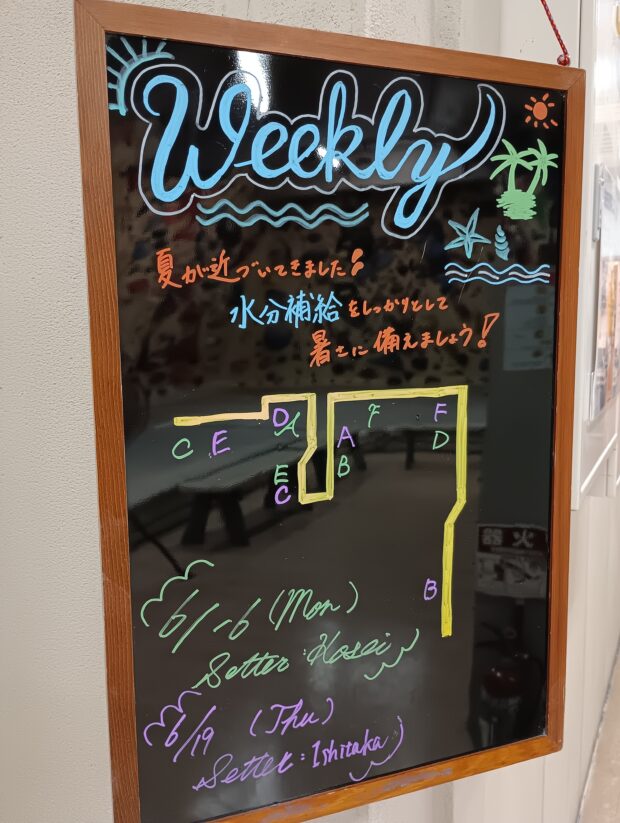 Weekly
夏が近づいてきました!!
水分補給をしっかりとして
暑さに備えましょう!
D F F
C E A A D
E B
C
B
6/16 (Mon)
Setter: Kosei
6/19 (Thu)
Setter: Ishitaka
火